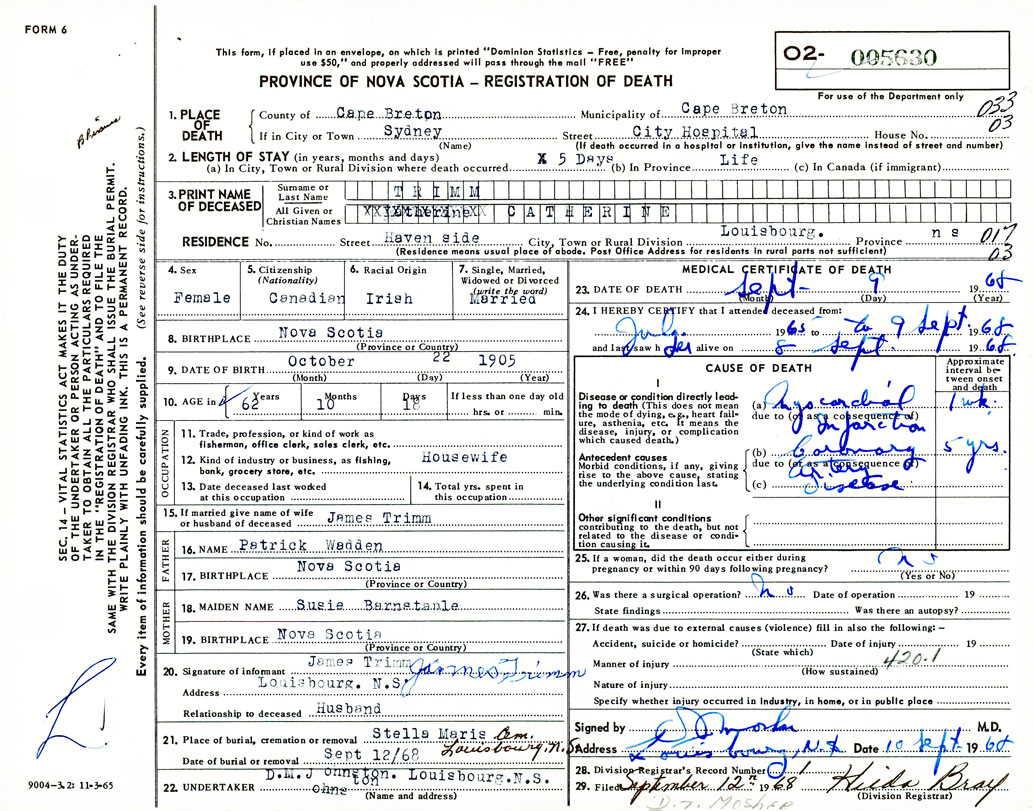 FORM 6
This form, if placed in an envelope, on which is printed "Dominion Statistics – Free, penalty for improper
use $50," and properly addressed will pass through the mail "FREE"
PROVINCE OF NOVA SCOTIA – REGISTRATION OF DEATH
02- 005630
For use of the Department only
033
03
1. PLACE OF DEATH
County of Cape Breton Municipality of Cape Breton
If in City or Town Sydney Street City Hospital House No.
(Name) (If death occurred in a hospital or institution, give the name instead of street and number)
2. LENGTH OF STAY (in years, months and days) X 5 Days Life
(a) In City, Town or Rural Division where death occurred (b) In Province (c) In Canada (if immigrant)
3. PRINT NAME OF DECEASED
Surname or Last Name TRIMM
All Given or Christian Names CATHERINE
RESIDENCE No. Street Haven side City, Town or Rural Division Louisbourg. Province n s 017
(Residence means usual place of abode. Post Office Address for residents in rural parts not sufficient) 03
4. Sex Female
5. Citizenship (Nationality) Canadian
6. Racial Origin Irish
7. Single, Married, Widowed or Divorced (write the word) Married
8. BIRTHPLACE Nova Scotia
(Province or Country)
9. DATE OF BIRTH October 22 1905
(Month) (Day) (Year)
10. AGE in 62 Years 10 Months 18 Days If less than one day old
hrs. or min.
OCCUPATION
11. Trade, profession, or kind of work as
fisherman, office clerk, sales clerk, etc.
12. Kind of industry or business, as fishing, Housewife
bank, grocery store, etc.
13. Date deceased last worked
at this occupation
14. Total yrs. spent in
this occupation
15. If married give name of wife
or husband of deceased James Trimm
FATHER
16. NAME Patrick Wadden
17. BIRTHPLACE Nova Scotia
(Province or Country)
MOTHER
18. MAIDEN NAME Susie Barnstaple
19. BIRTHPLACE Nova Scotia
(Province or Country)
20. Signature of informant James Trimm James Trimm
Address Louisbourg. N.S.
Relationship to deceased Husband
21. Place of burial, cremation or removal Stella Maris Cem. Louisbourg, N.S.
Date of burial or removal Sept 12/68
22. UNDERTAKER D.M.Johnston. Louisbourg.N.S.
(Name and address)
MEDICAL CERTIFICATE OF DEATH
23. DATE OF DEATH Sept- 9 1968
(Month) (Day) (Year)
24. I HEREBY CERTIFY that I attended deceased from:
July 1965 to 9 Sept. 1968
and last saw her alive on 8 Sept. 1968
CAUSE OF DEATH
Approximate interval between onset and death
I
Disease or condition directly leading to death (This does not mean the mode of dying, e.g., heart failure, asthenia, etc. It means the disease, injury, or complication which caused death.)
(a) Myocardial 1 wk.
due to (or as a consequence of)
Infarction
Antecedent causes
Morbid conditions, if any, giving rise to the above cause, stating the underlying condition last.
(b) Coronary 5 yrs.
due to (or as a consequence of)
Artery
(c) Disease
II
Other significant conditions
contributing to the death, but not related to the disease or condition causing it.
25. If a woman, did the death occur either during
pregnancy or within 90 days following pregnancy? no
(Yes or No)
26. Was there a surgical operation? no Date of operation 19
State findings Was there an autopsy?
27. If death was due to external causes (violence) fill in also the following: –
Accident, suicide or homicide? Date of injury 19
(State which)
Manner of injury 420.1
(How sustained)
Nature of injury
Specify whether injury occurred in industry, in home, or in public place
Signed by M.D.
Address Louisbourg, N.S. Date 10 Sept. 1968
28. Division Registrar's Record Number
29. Filed September 12th 1968 Hilda Bray
(Division Registrar)
D.F. MOSHER
SEC. 14 – VITAL STATISTICS ACT MAKES IT THE DUTY
OF THE UNDERTAKER OR PERSON ACTING AS UNDER-
TAKER TO OBTAIN ALL THE PARTICULARS REQUIRED
IN THE "REGISTRATION OF DEATH" AND TO FILE THE
SAME WITH THE DIVISION REGISTRAR WHO SHALL ISSUE THE BURIAL PERMIT.
WRITE PLAINLY WITH UNFADING INK. THIS IS A PERMANENT RECORD.
Every item of information should be carefully supplied. (See reverse side for instructions.)
9004-3.2: 11-3-65